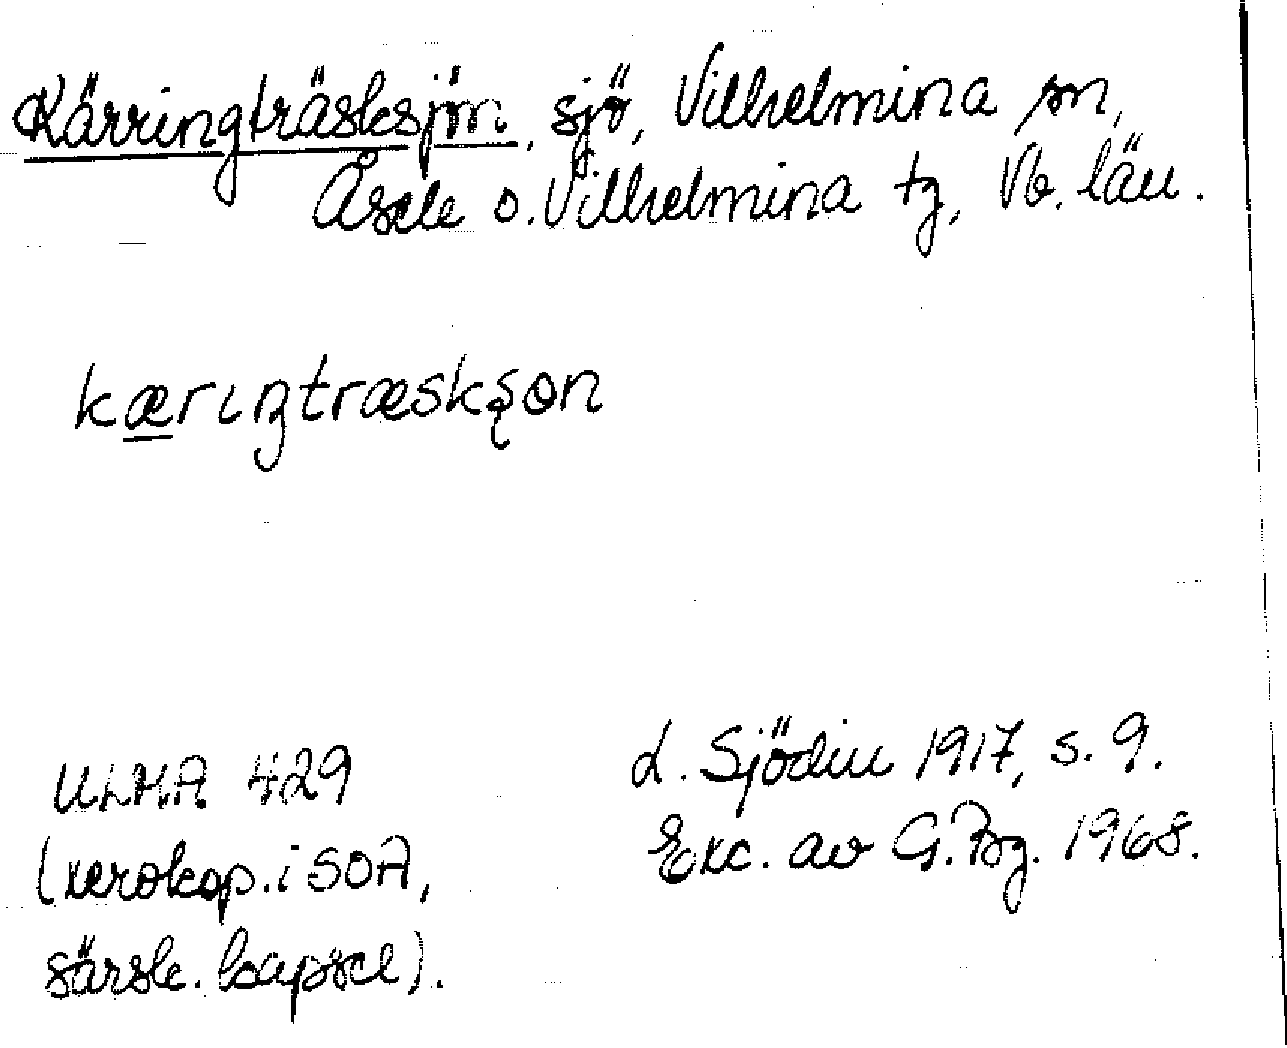 Kärringträsksjön, sjö, Vilhelmina sn,
Åsele o. Vilhelmina tg, Vb. län.
kærıŋtræskʂɵn
ULMA 429
(xerokop. i SOA,
särsk. kapsel).
L. Sjödin 1917, s. 9.
Exc. av G. Bg. 1968.